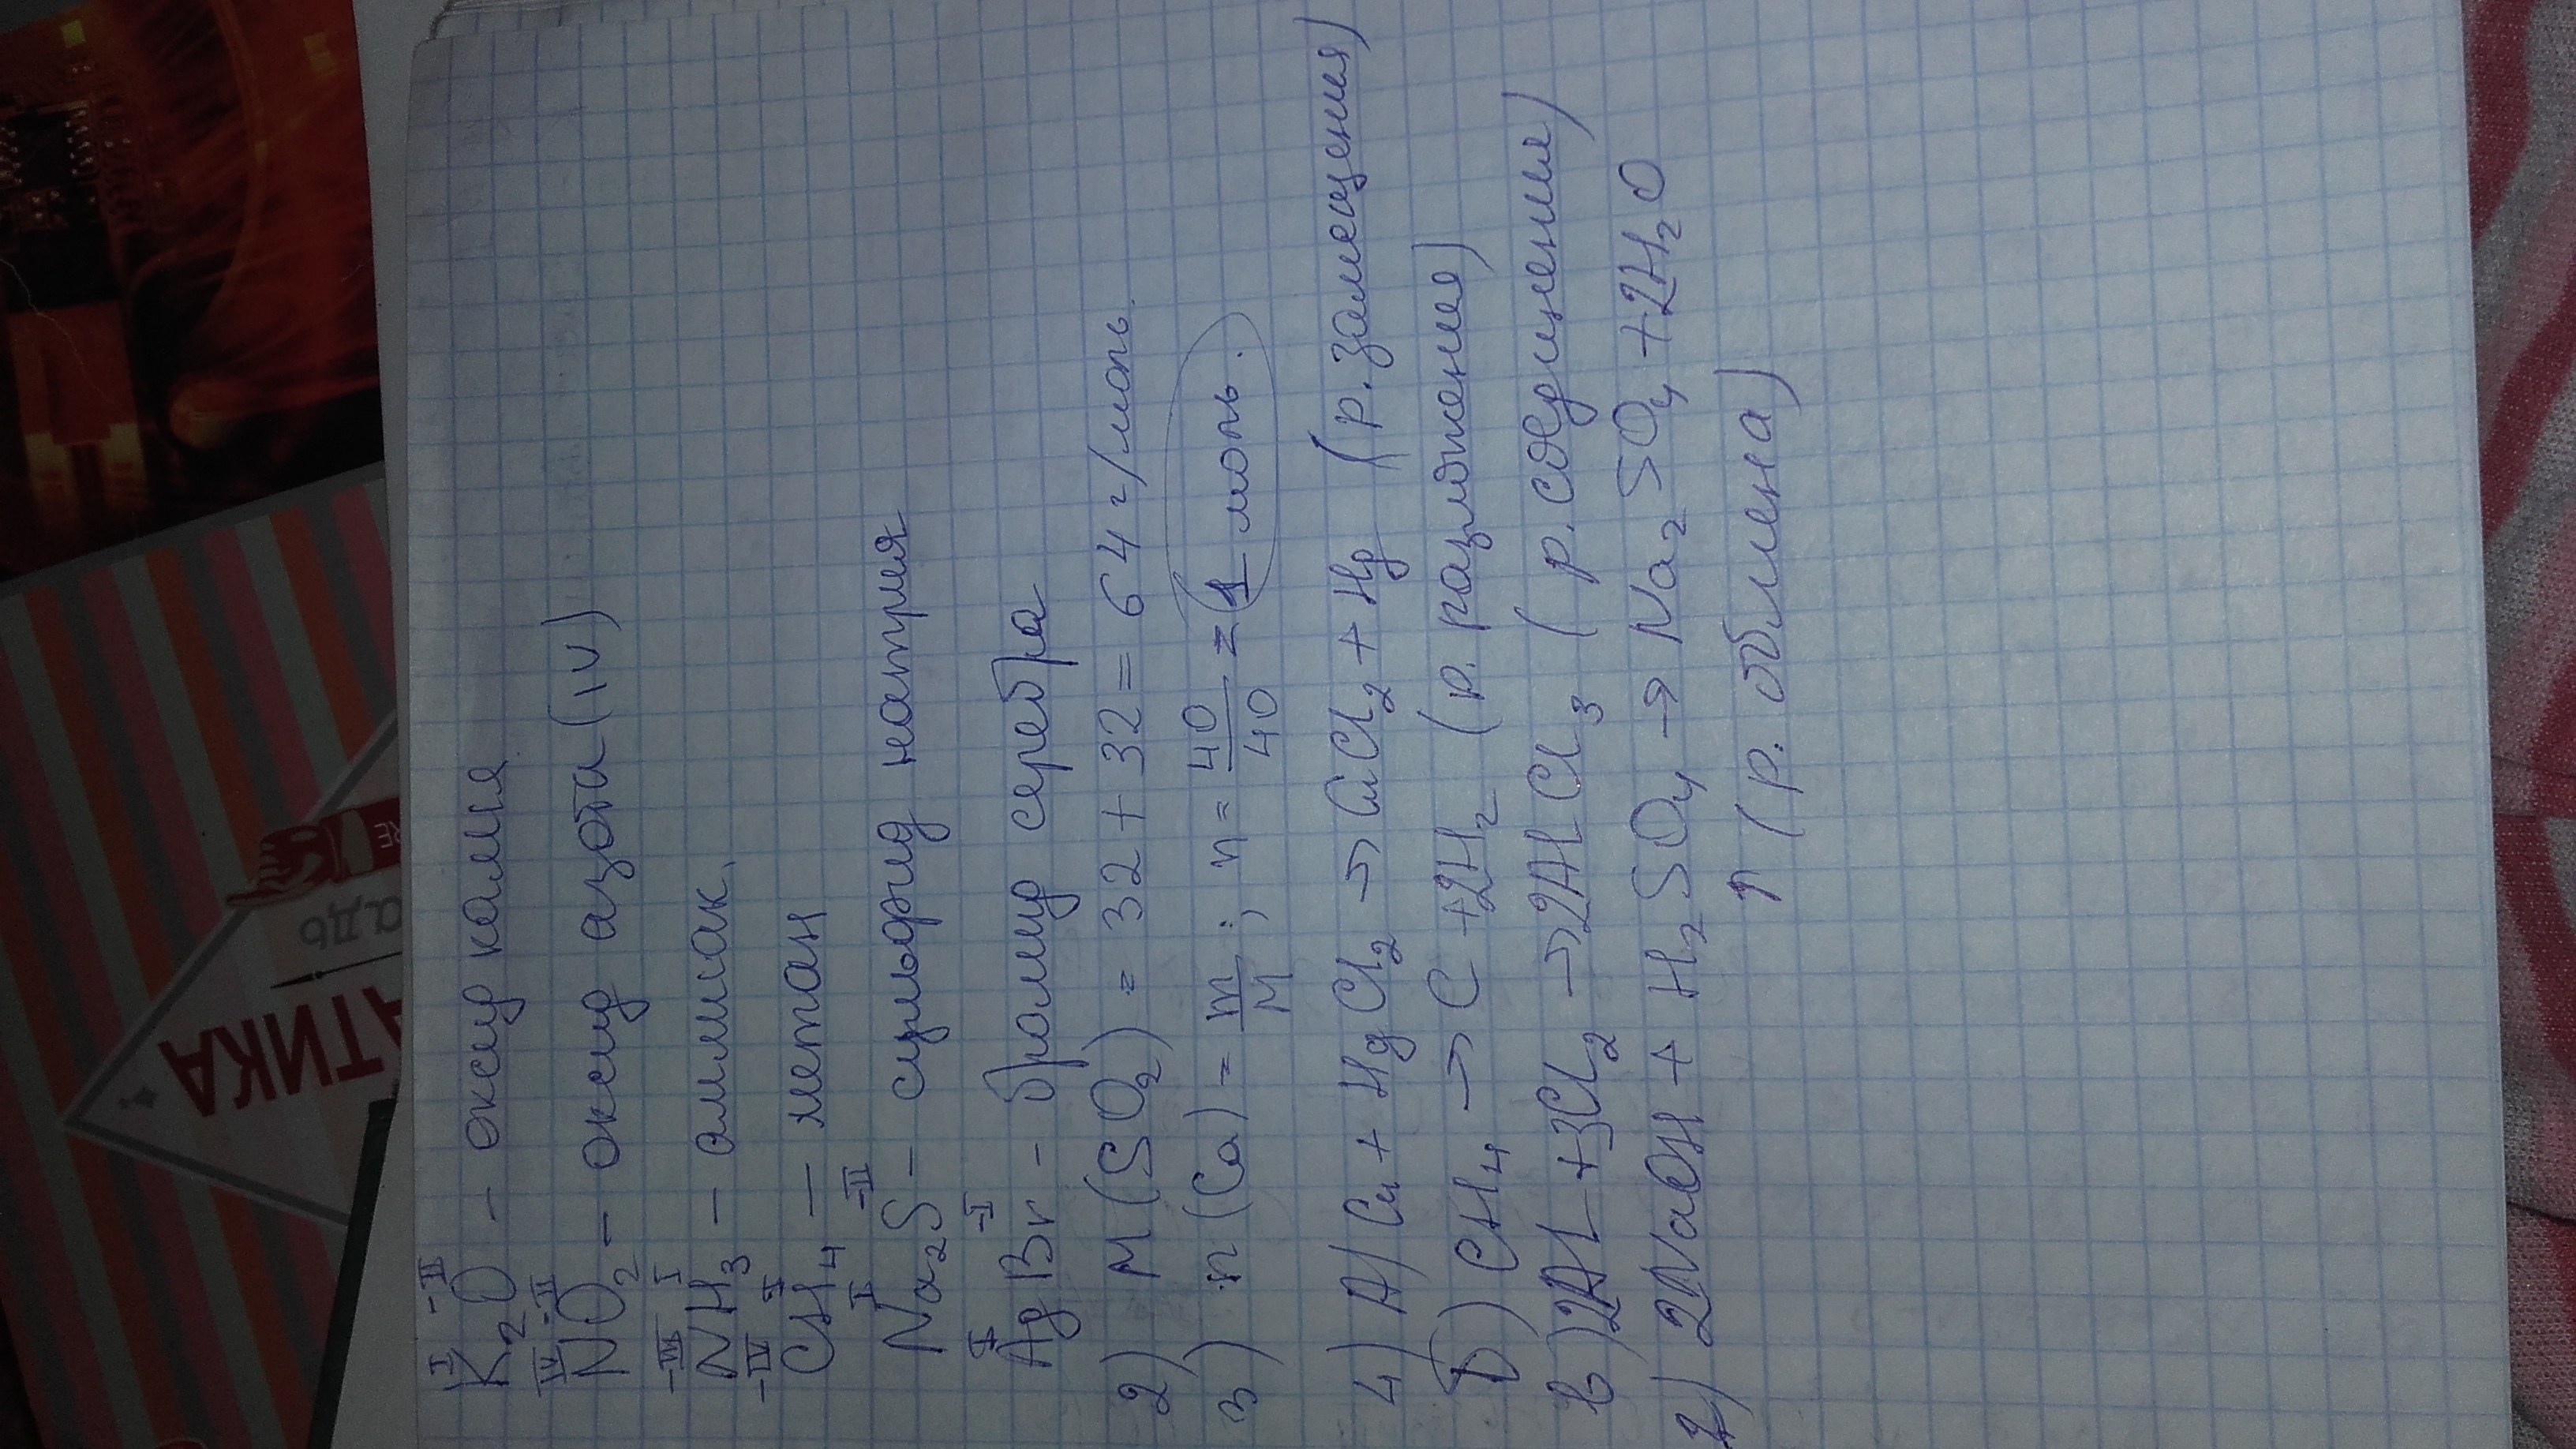 I -II
K₂O - оксид калия
IV -II
NO₂ - оксид азота (IV)
-III I
NH₃ - аммиак.
-IV I
CH₄ - метан
I -II
Na₂S - сульфид натрия
I -I
AgBr - бромид серебра
2) M (SO₂) = 32 + 32 = 64 г/моль
3) n (Ca) = m/M; n = 40/40 = 1 моль.
4) А) Cu + HgCl₂ → CuCl₂ + Hg (р. замещения)
Б) CH₄ → C + 2H₂ (р. разложение)
в) 2Al + 3Cl₂ → 2AlCl₃ (р. соединения)
г) 2NaOH + H₂SO₄ → Na₂SO₄ + 2H₂O
(р. обмена)
АТИКА
адь
RE